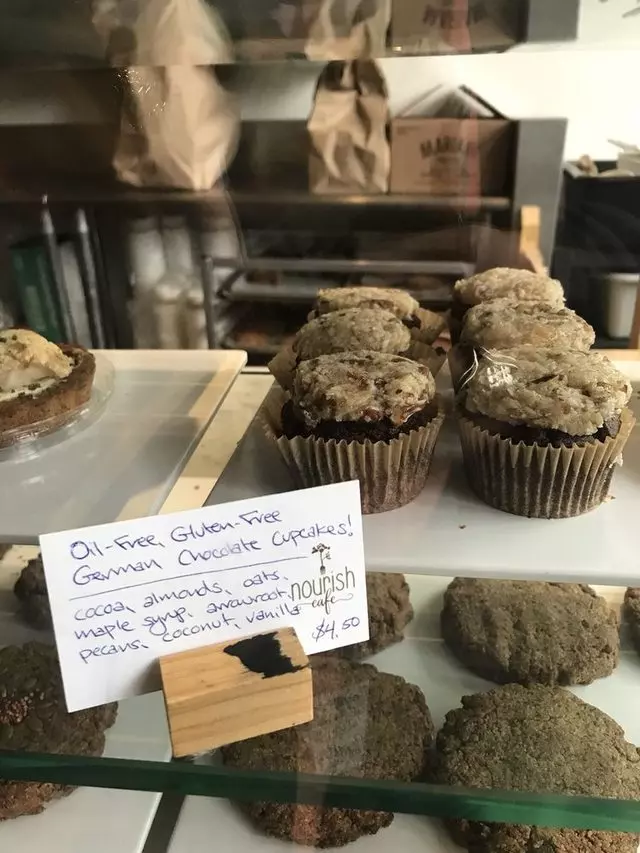 Oil-Free, Gluten-Free
German Chocolate Cupcakes!
cocoa, almonds, oats,
maple syrup, arrowroot,
pecans, coconut, vanilla
nourish
cafe
$4.50